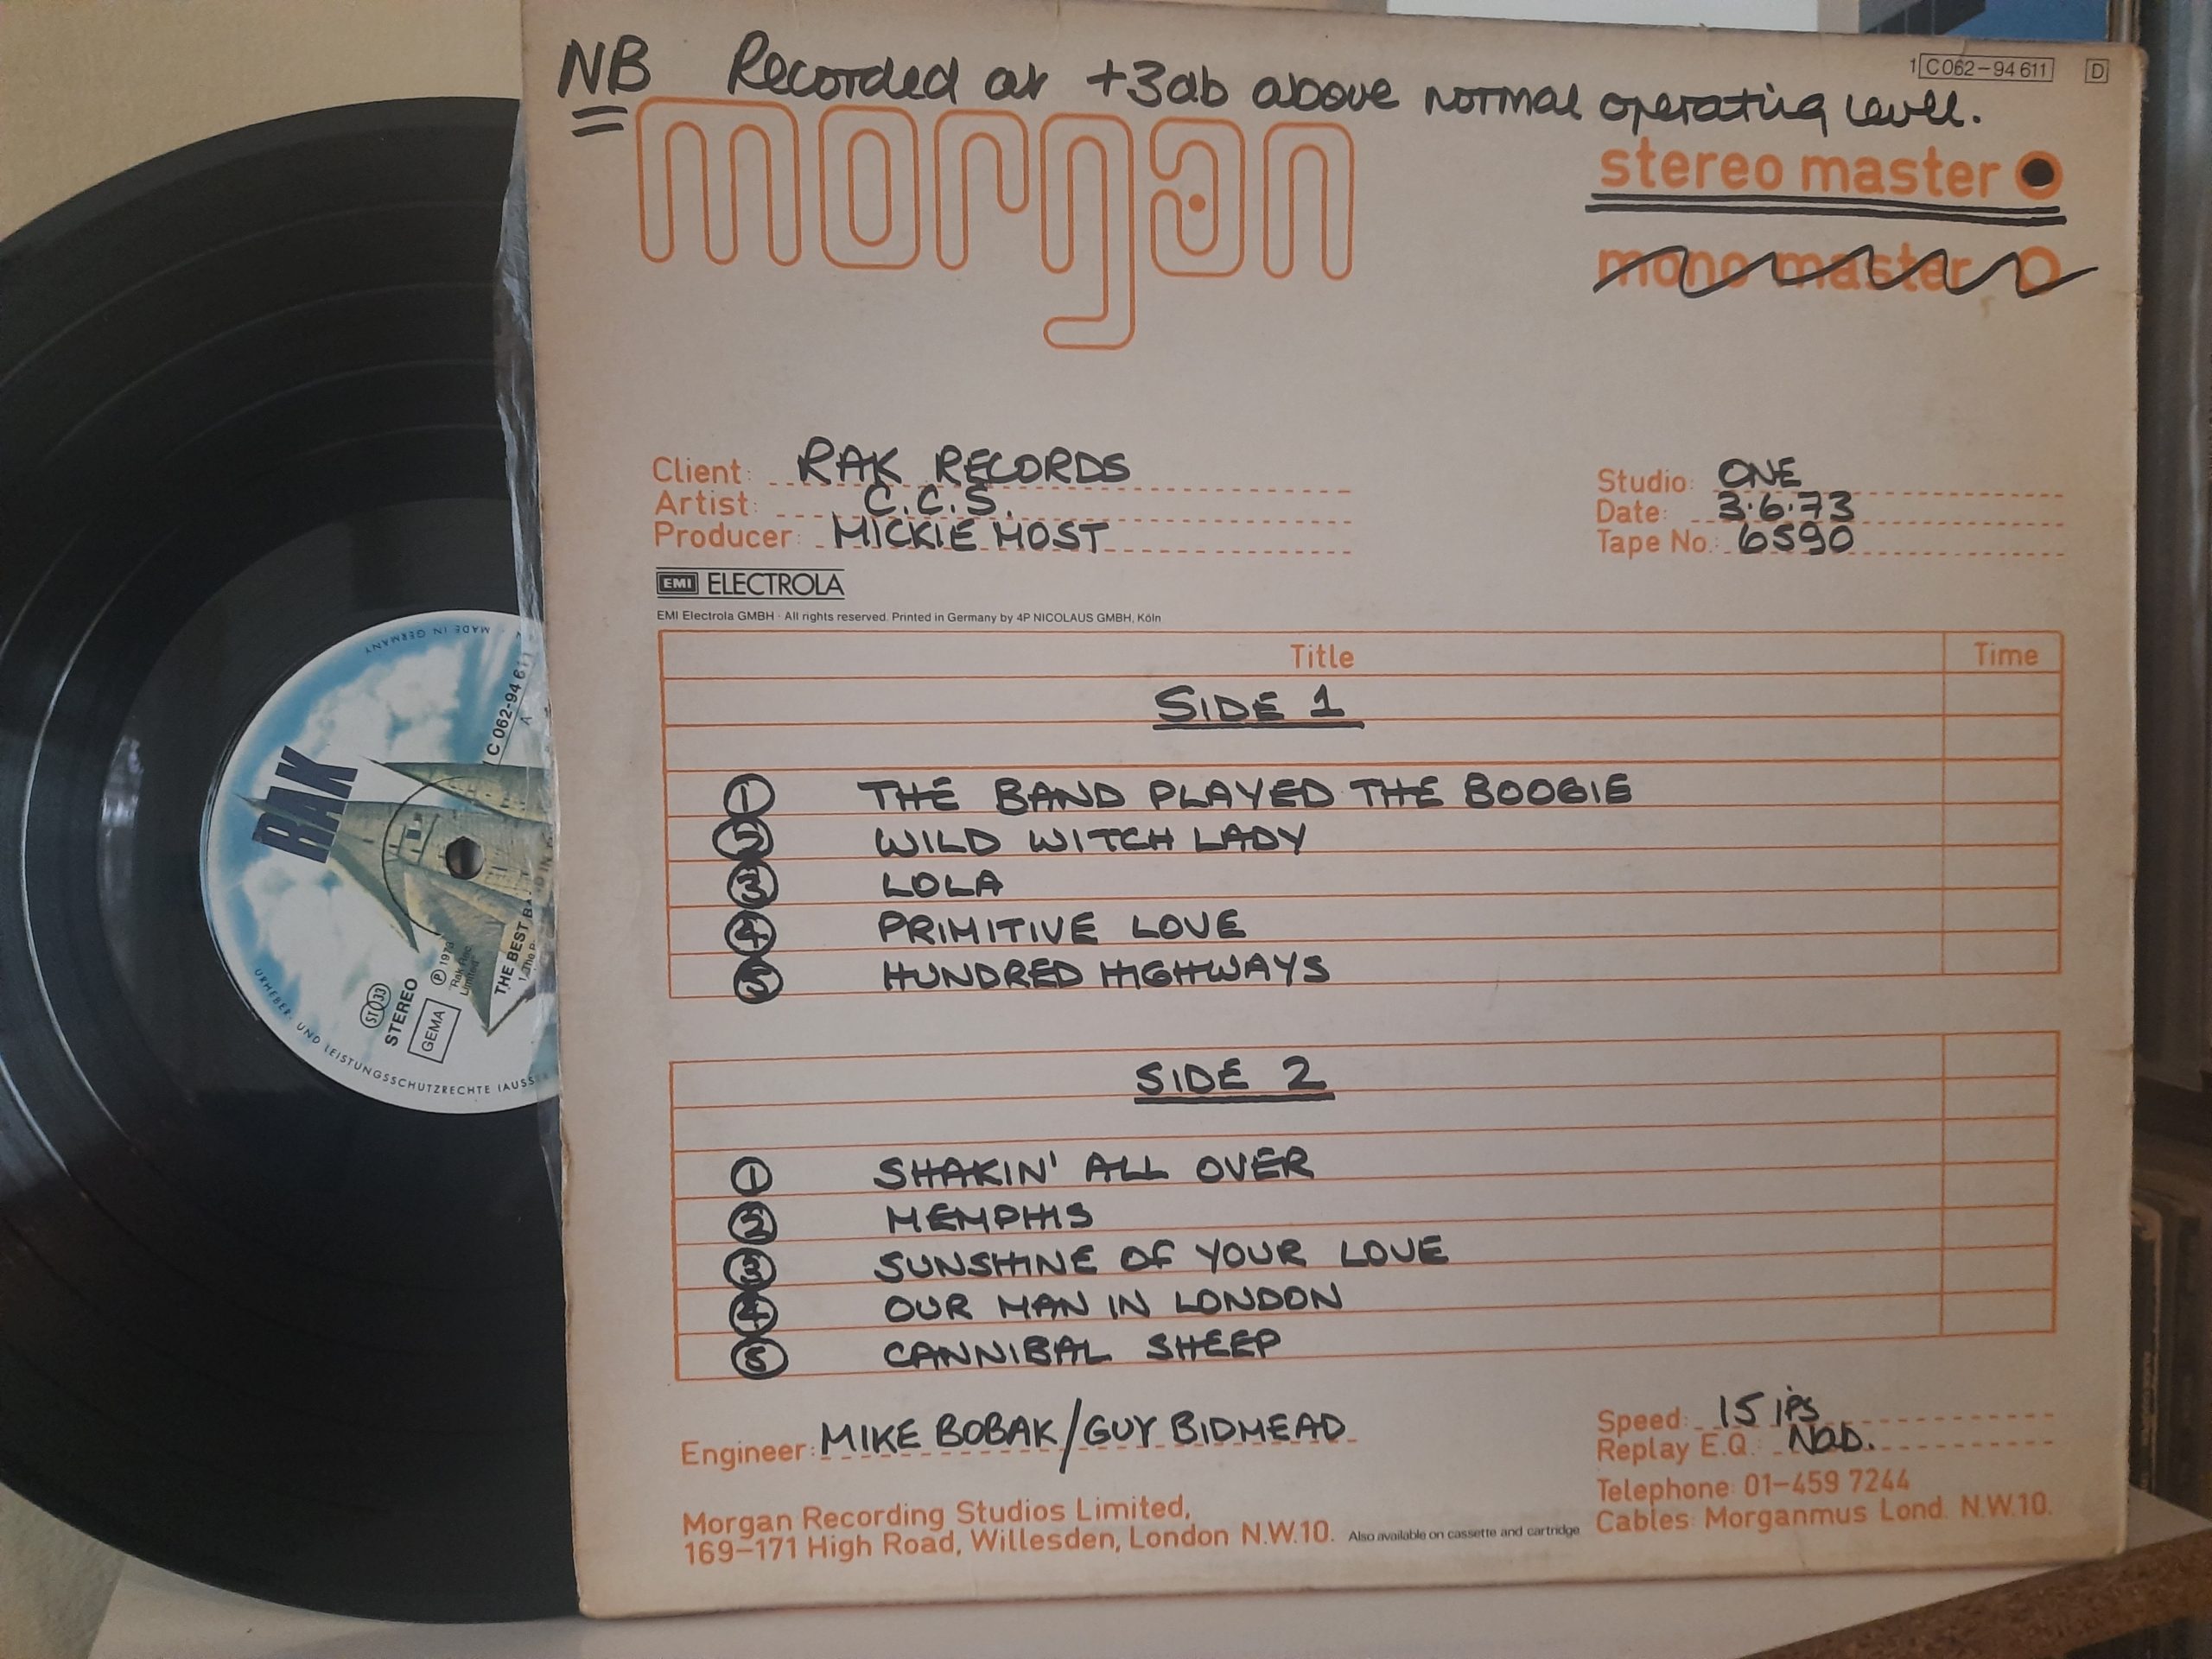 NB Recorded at +3db above normal operating level.
1 C062-94 611 D
morgan
stereo master
mono master
Client: RAK RECORDS
Artist: C.C.S.
Producer: MICKIE MOST
Studio: ONE
Date: 3.6.73
Tape No.: 6590
EMI ELECTROLA
EMI Electrola GMBH · All rights reserved. Printed in Germany by 4P NICOLAUS GMBH, Köln
Title Time
SIDE 1
1 THE BAND PLAYED THE BOOGIE
2 WILD WITCH LADY
3 LOLA
4 PRIMITIVE LOVE
5 HUNDRED HIGHWAYS
SIDE 2
1 SHAKIN' ALL OVER
2 MEMPHIS
3 SUNSHINE OF YOUR LOVE
4 OUR MAN IN LONDON
5 CANNIBAL SHEEP
Engineer: MIKE BOBAK/GUY BIDMEAD
Speed: 15 ips
Replay E.Q.: NAB.
Telephone: 01-459 7244
Cables: Morganmus Lond. N.W.10.
Morgan Recording Studios Limited,
169-171 High Road, Willesden, London N.W.10.
Also available on cassette and cartridge
MADE IN GERMANY
1 C 062-94 611
A
RAK
THE BEST BA
1. The
℗ 1973
Rak Rec.
Limited
ST 33
STEREO
GEMA
URHEBER- UND LEISTUNGSSCHUTZRECHTE (AUSS